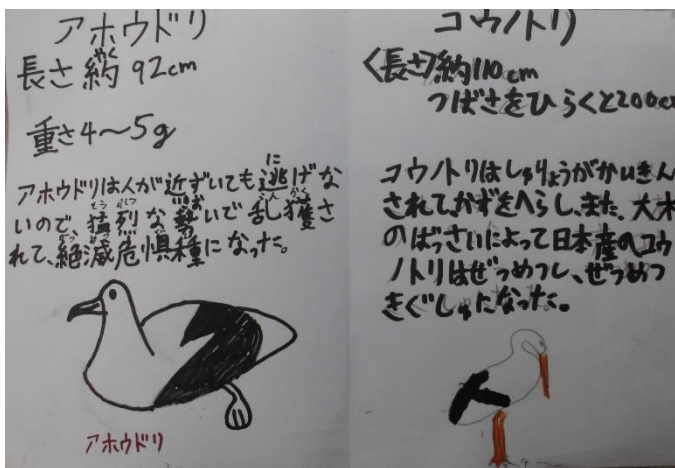 アホウドリ
長さ約92cm
重さ4〜5g
アホウドリは人が近ずいても逃げな
いので、猛烈な勢いで乱獲さ
れて、絶滅危惧種になった。
アホウドリ
コウノトリ
〈長さ〉約110cm
つばさをひらくと200cm
コウノトリはしゅりょうがかいきん
されて、かずをへらし、また、大木
のばっさいによって日本産のコウ
ノトリはぜつめつし、ぜつめつ
きぐしゅになった。